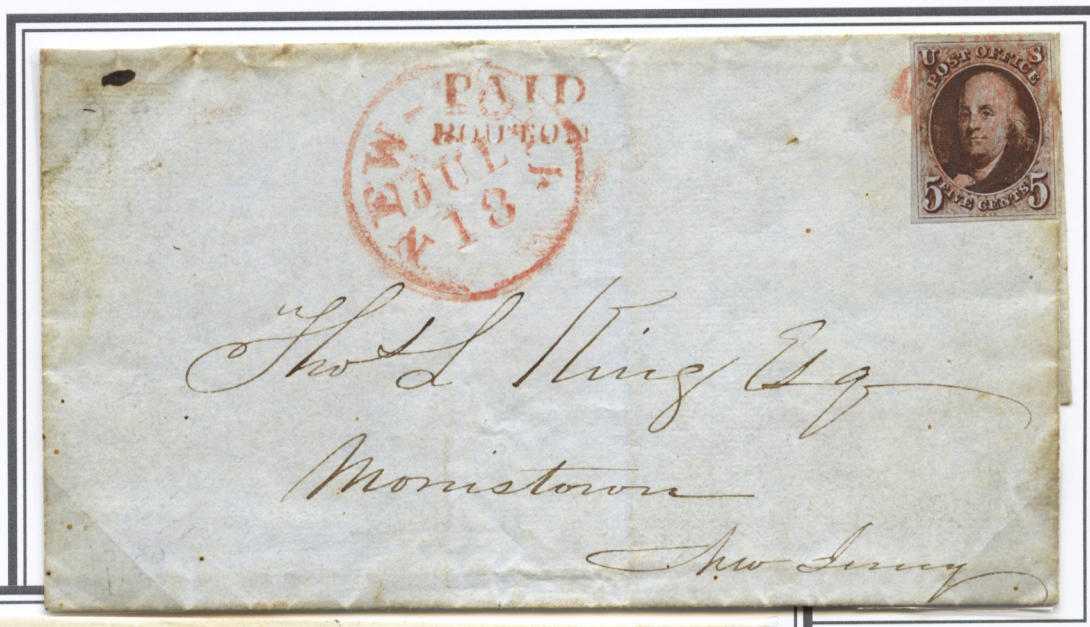 PAID
HOUSTON
NEW-Y
JUL
18
U S
POST OFFICE
5 FIVE CENTS 5
Thos L King Esq
Morristown
New Jersey